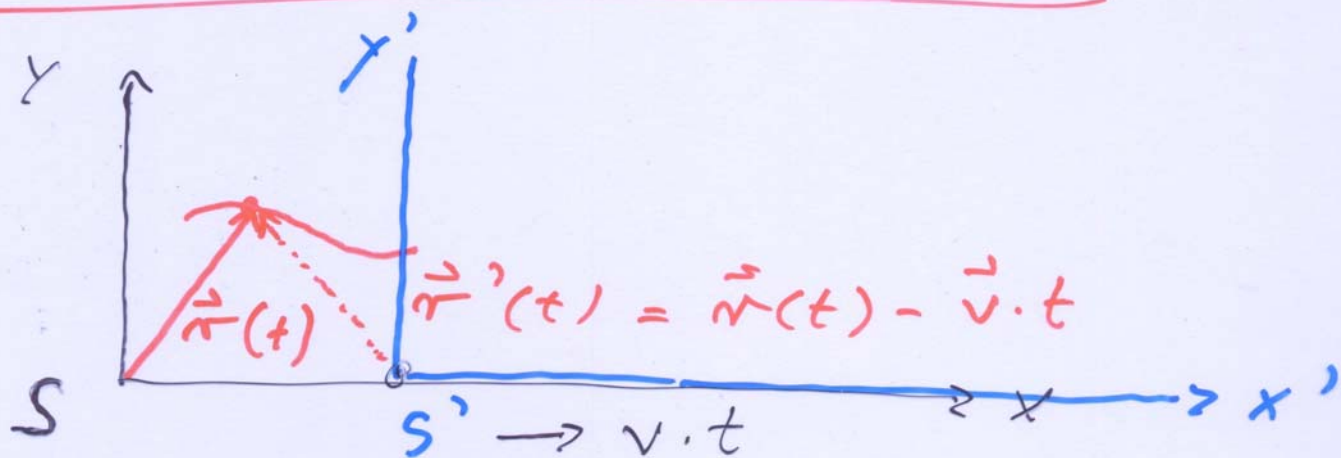 Y Y'
r⃗(t) r⃗'(t) = r⃗(t) - v⃗·t
S S' → v·t X X'